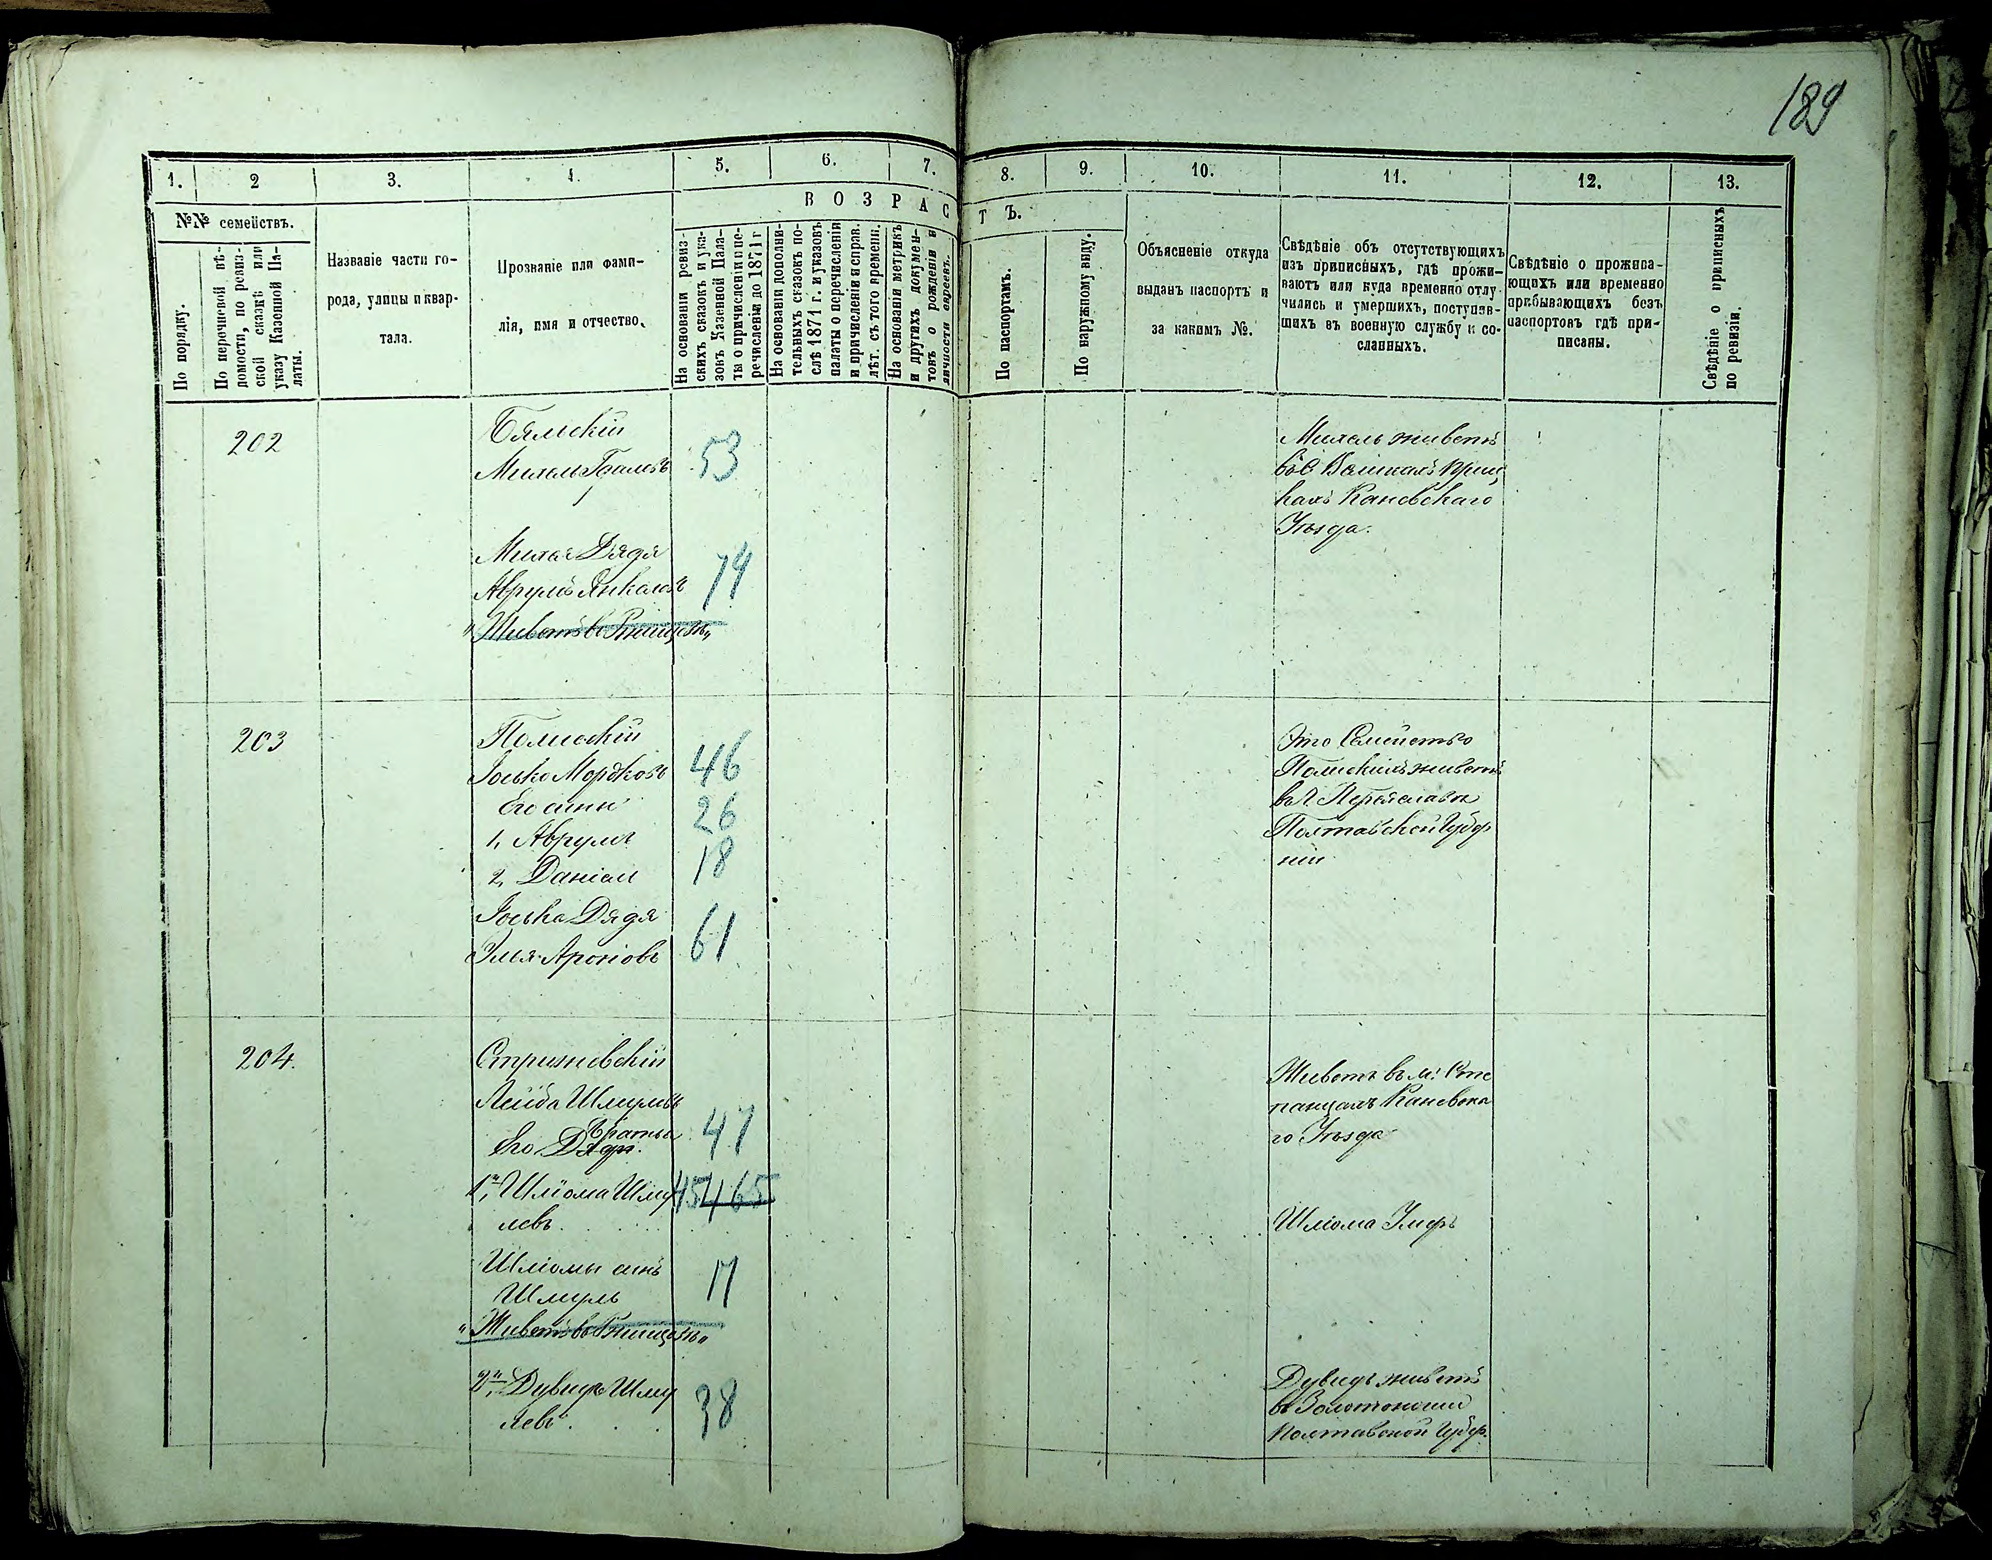 189
1. 2 3. 4. 5. 6. 7. 8. 9. 10. 11. 12. 13.
ВОЗРАСТЪ.
№№ семействъ.
По порядку.
По перечневой вѣ-
домости, по ревиз-
ской сказкѣ или
указу Казенной Па-
латы.
Названіе части го-
рода, улицы и квар-
тала.
Прозваніе или фами-
лія, имя и отчество.
На основаніи ревиз-
скихъ сказокъ и ука-
зовъ Казенной Пала-
ты о причисленіи и пе-
речисленіи до 1871 г.
На основаніи дополни-
тельныхъ сказокъ по-
слѣ 1871 г. и указовъ
палаты о перечисленіи
и причисленіи и справ.
лѣт. съ того времени.
На основаніи метрикъ
и другихъ докумен-
товъ о рожденіи и
личности евреевъ.
По паспортамъ.
По наружному виду.
Объясненіе откуда
выданъ паспортъ и
за какимъ №.
Свѣдѣніе объ отсутствующихъ
изъ приписныхъ, гдѣ прожи-
ваютъ или куда временно отлу-
чились и умершихъ, поступив-
шихъ въ военную службу и со-
сланныхъ.
Свѣдѣніе о прожива-
ющихъ или временно
прибывающихъ безъ
паспортовъ гдѣ при-
писаны.
Свѣдѣніе о приписныхъ
по ревизіи.
202
Бяльскій
Михель
53
Михеля Дядя
Аврумъ Янкелевъ
74
„Живетъ въ Ржищевѣ„
Михель живетъ
въ
Каневскаго
Уѣзда.
203
Полиский
Іосько Мордковъ 46
Его сины 26
1, Аврумъ 18
2, Даніел
Іоська Дядя
Элья Ароновъ 61
Это Семейство
Полискихъ живетъ
въ г Переяславѣ
Полтавской Губер
ніи
204.
Стрижевскій
Лейба Шмулевъ
47
братья
Его Дяди.
1й, Шліома Шму 45 465
левъ.
Шліомы синъ 17
Шмуль
„Живетъ въ Ржищевѣ„
2й, Дувидъ Шму
левъ. 38
Живетъ въ м: Сте
панцахъ Каневска
го Уѣзда
Шліома Умеръ
Дувидъ живетъ
въ Золотоноши
Полтавской Губер.